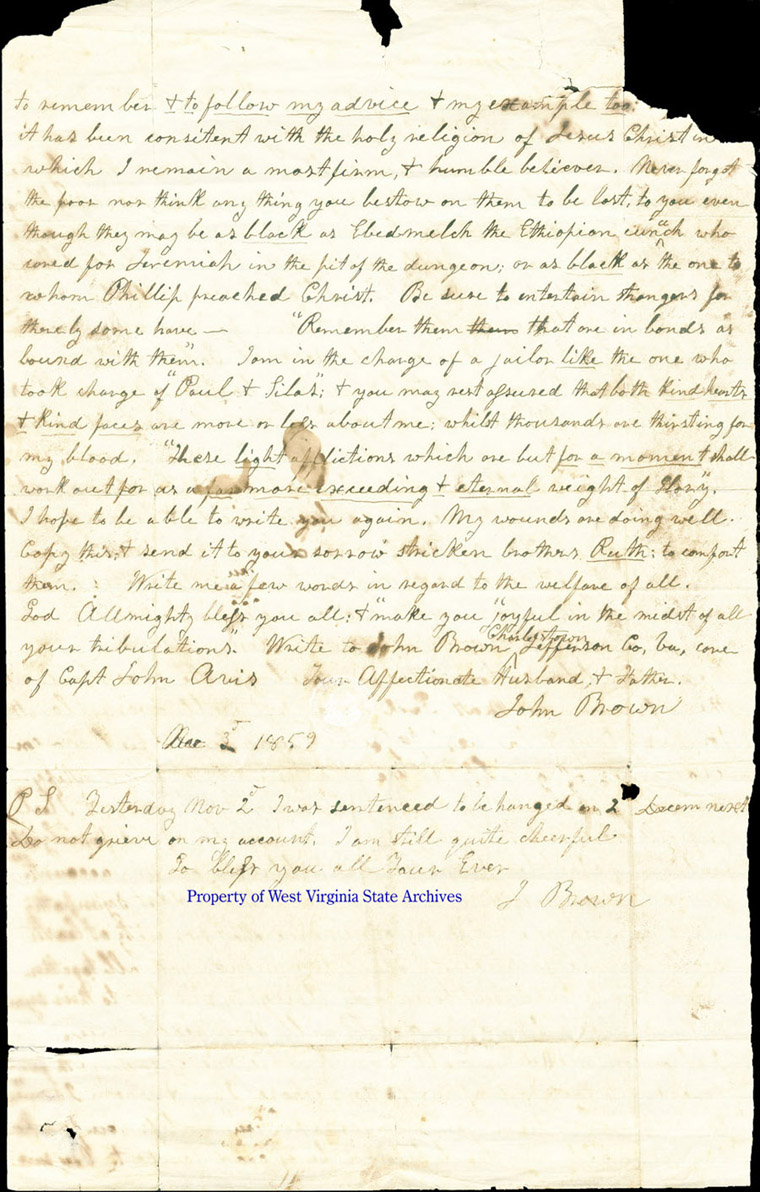 to remember & to follow my advice & my example too:
it has been consitent with the holy religion of Jesus Christ in
which I remain a most firm, & humble believer. Never forget
the poor nor think any thing you bestow on them to be lost, to you even
though they may be as black as Ebedmelch the Ethiopian eunuch who
cared for Jeremiah in the pit of the dungeon; or as black as the one to
whom Phillip preached Christ. Be sure to entertain strangers for
thereby some have — "Remember them them that are in bonds as
bound with them". I am in the charge of a jailor like the one who
took charge of "Paul & Silas"; & you may rest assured that both kind hearts
& kind faces are more or less about me; whilst thousands are thirsting for
my blood. "These light afflictions which are but for a moment shall
work out for us a far more exceeding & eternal weight of Glory".
I hope to be able to write you again. My wounds are doing well.
Copy this, & send it to your sorrow stricken brothers, Ruth; to comfort
them. Write me a few words in regard to the welfare of all.
God Allmighty bless you all: & "make you joyful in the midst of all
your tribulations." Write to John Brown, Charlestown Jefferson Co, Va, care
of Capt John Avis Your Affectionate Husband, & Father.
John Brown
Nov 3d 1859
P S Yesterday Nov 2d I was sentenced to be hanged on 2 Decem next
Do not grieve on my account. I am still quite cheerful.
Go bless you all Your Ever
J Brown
Property of West Virginia State Archives